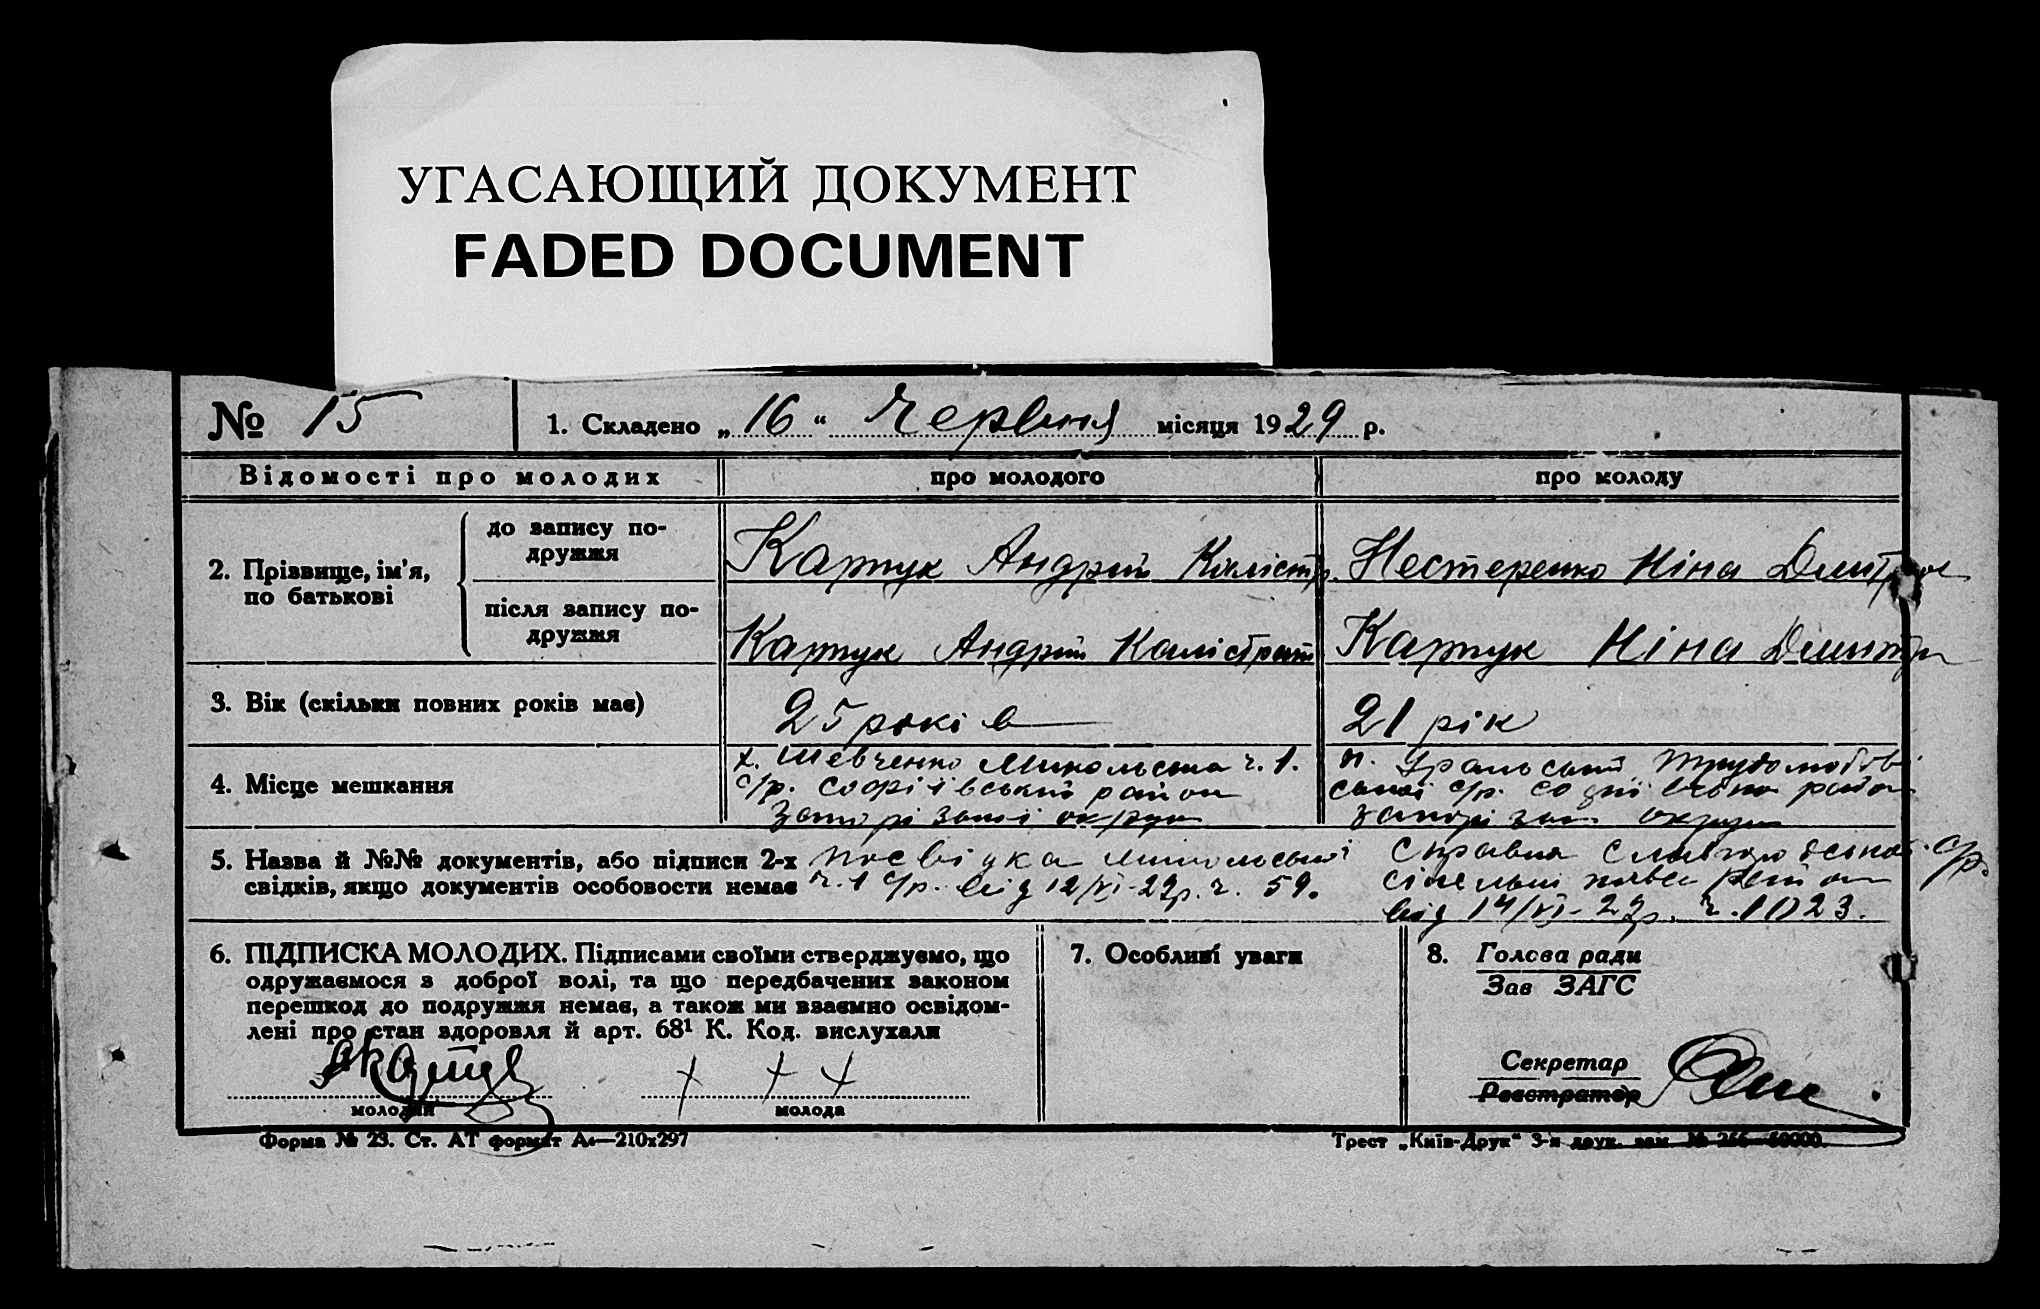 УГАСАЮЩИЙ ДОКУМЕНТ
FADED DOCUMENT
№ 15
1. Складено „16“ червня місяця 1929 р.
Відомості про молодих
про молодого
про молоду
2. Прізвище, ім'я, по батькові
до запису по-
дружжя
Карпук Андрій Калістр.
Нестеренко Ніна Дмитр
після запису по-
дружжя
Карпук Андрій Калістрат
Карпук Ніна Дмитр
3. Вік (скільки повних років має)
25 років
21 рік
4. Місце мешкання
х. Шевченко Микольська ч. 1.
с/р. Софіївський район
Запорізької округи
п. Уральський
с/р. район
округи
5. Назва й №№ документів, або підписи 2-х
свідків, якщо документів особовости немає
посвідка Микольської
ч. 1 с/р. від 12/VI-29р. ч. 59.
Справка с/р.
від 14/VI-29р. ч. 1023.
6. ПІДПИСКА МОЛОДИХ. Підписами своїми стверджуємо, що
одружаємося з доброї волі, та що передбачених законом
перешкод до подружжя немає, а також ми взаємно освідом-
лені про стан здоровля й арт. 68¹ К. Код. вислухали
+ + +
молодий
молода
7. Особливі уваги
8. Голова ради
Зав ЗАГС
Секретар
Реєстратор
Форма № 23. Ст. АТ формат А₄—210х297
Трест „Київ-Друк“ 3-я друк. зам. № 266—60000.